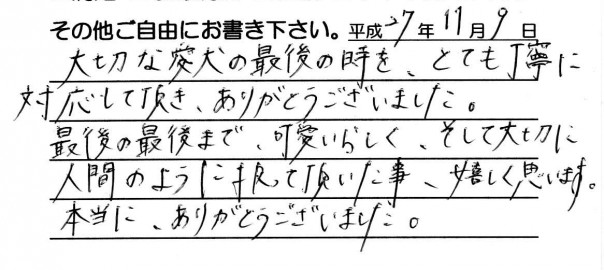 その他ご自由にお書き下さい。平成27年11月9日
大切な愛犬の最後の時を、とても丁寧に
対応して頂き、ありがとうございました。
最後の最後まで、可愛いらしく、そして大切に
人間のように扱って頂いた事、嬉しく思います。
本当に、ありがとうございました。